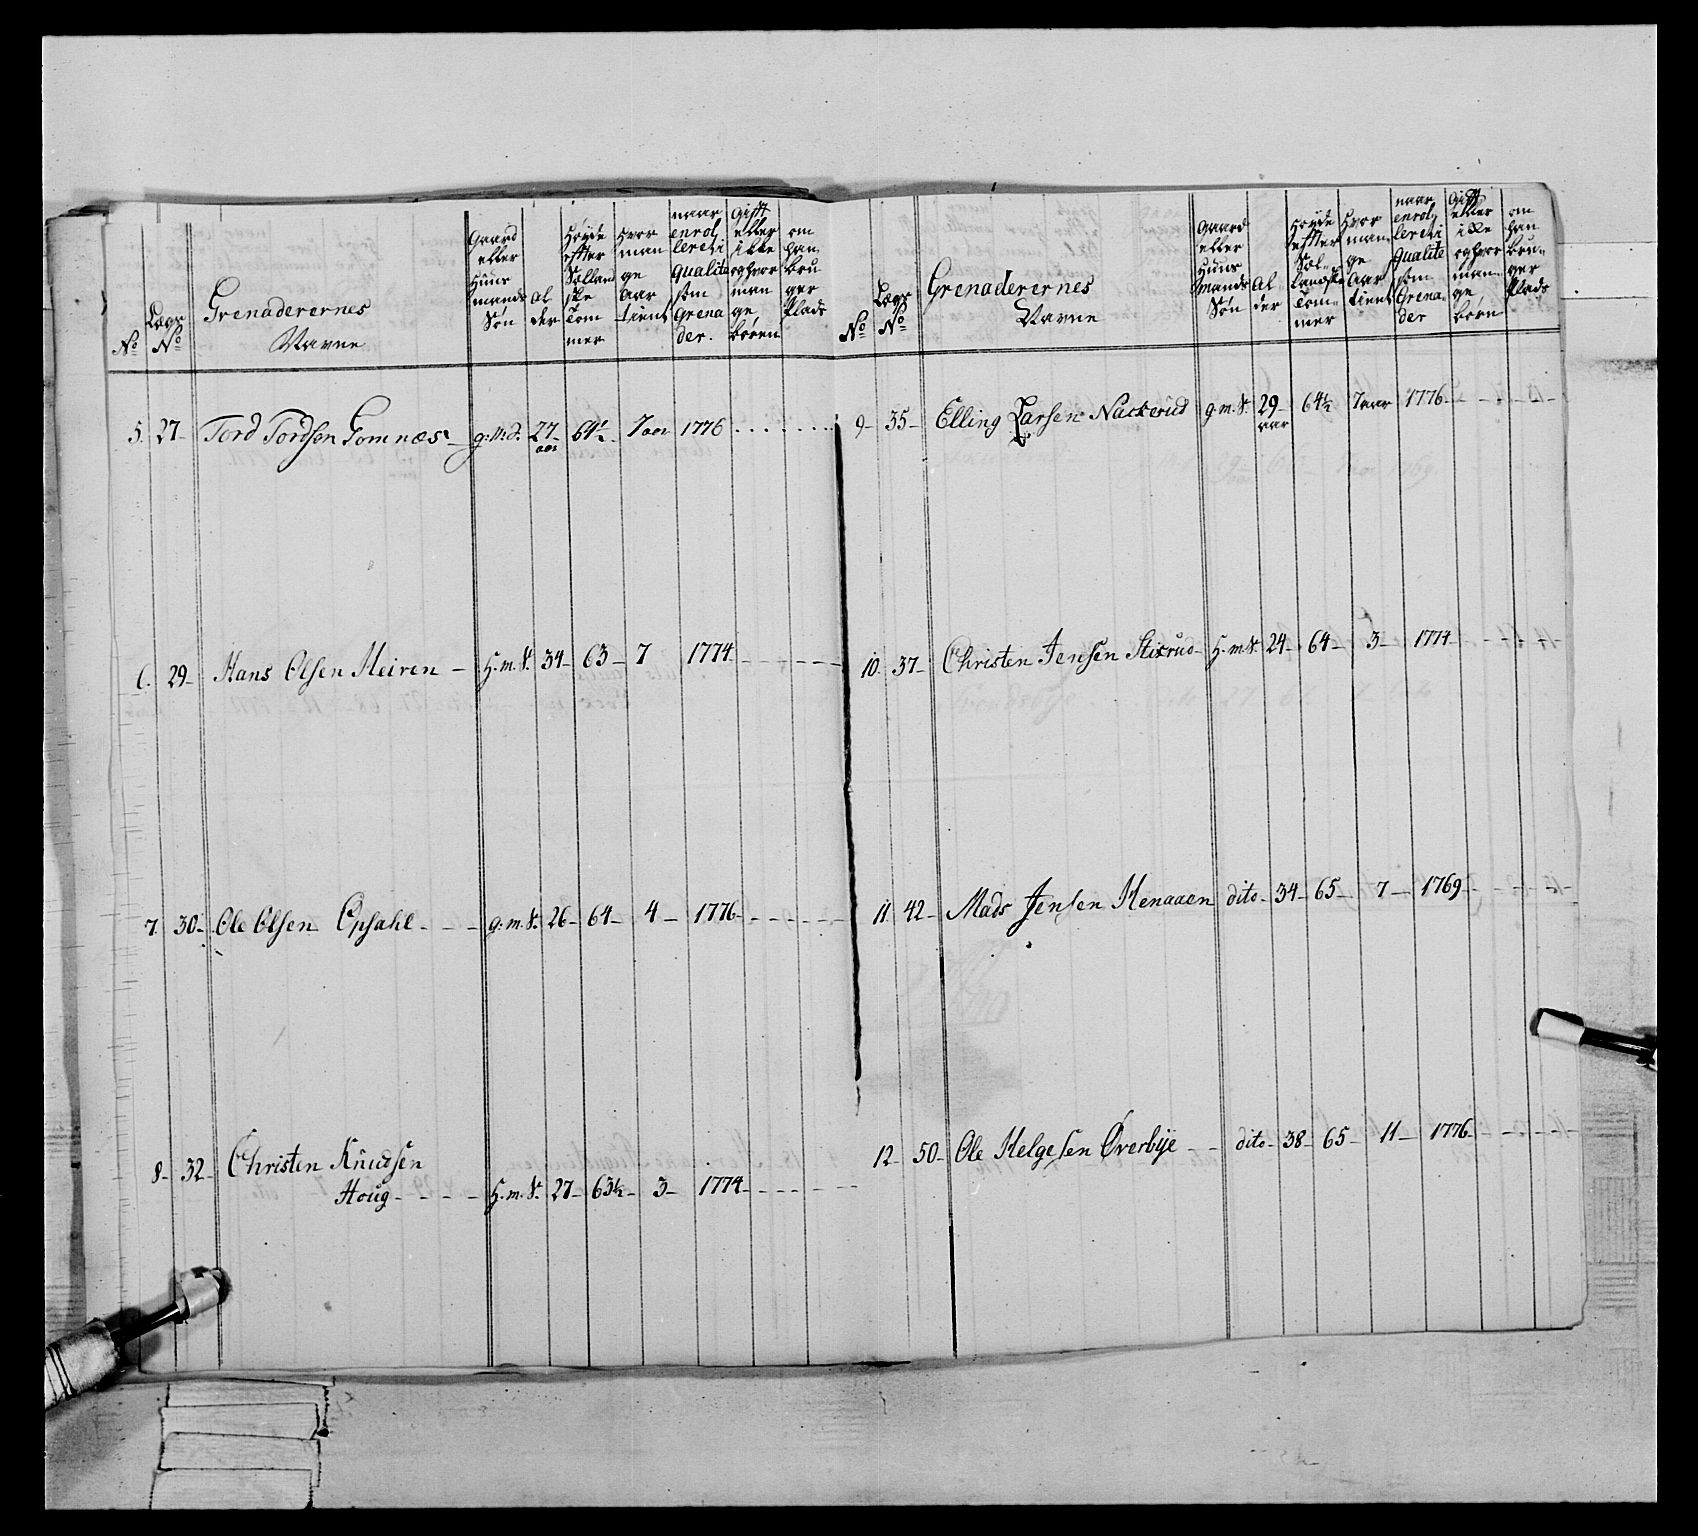 No
Lægs No
Grenaderernes
Navne
Gaard eller Huus mands Søn
Al der
Høyde effter Sælland ske Tom mer
Hvor man ge Aar tient
naar enrol leret i qualite som Grena der.
Gifft eller ikke og hvor man ge børen
om han bru ger Plads
5. 27- Tord Tordsen Gomnæs - g: m: S. 27- aar 64½ 7 aar 1776
6. 29- Hans Olsen Heiren - H. m. S. 34- 63- 7 1774
7. 30- Ole Olsen Opsahl - - - g. m. S. 26- 64- 4- 1776
8- 32- Christen Knudsen
Houg - - - - H. m. S. 27- 63½- 3- 1774
No
Lægs No
Grenaderernes
Navne
Gaard eller Huus mands Søn
Al der
Høyde effter Sæl- landske Tom- mer
Hvor man ge Aar tient
naar enrol leret i Qualite som Grena der
Gifft eller ikke og hvor man- ge børn
om han bru- ger Plads
9- 35- Elling Larsen Nackerud g. m. S. 29- aar 64½ 7 aar 1776
10. 37- Christen Jensen Stixrud- H. m. S. 24- 64- 3- 1774
11. 42- Mads Jensen Henaaen dito- 34- 65- 7- 1769
12- 50- Ole Helgesen Øverbye - - dito- 38- 65- 11- 1776